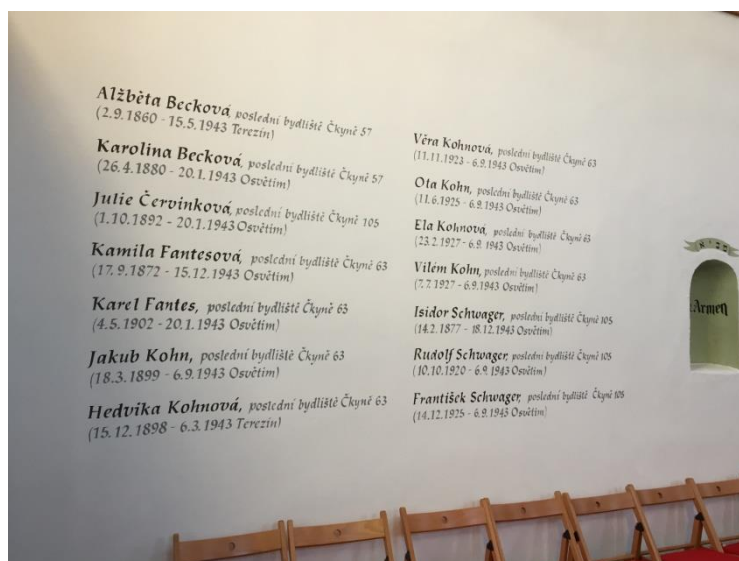 Alžběta Becková, poslední bydliště Čkyně 57
(2.9.1860 - 15.5.1943 Terezín)
Karolina Becková, poslední bydliště Čkyně 57
(26.4.1880 - 20.1.1943 Osvětim)
Julie Červinková, poslední bydliště Čkyně 105
(1.10.1892 - 20.1.1943 Osvětim)
Kamila Fantesová, poslední bydliště Čkyně 63
(17.9.1872 - 15.12.1943 Osvětim)
Karel Fantes, poslední bydliště Čkyně 63
(4.5.1902 - 20.1.1943 Osvětim)
Jakub Kohn, poslední bydliště Čkyně 63
(18.3.1899 - 6.9.1943 Osvětim)
Hedvika Kohnová, poslední bydliště Čkyně 63
(15.12.1898 - 6.3.1943 Terezín)
Věra Kohnová, poslední bydliště Čkyně 63
(11.11.1923 - 6.9.1943 Osvětim)
Ota Kohn, poslední bydliště Čkyně 63
(11.6.1925 - 6.9.1943 Osvětim)
Ela Kohnová, poslední bydliště Čkyně 63
(23.2.1927 - 6.9.1943 Osvětim)
Vilém Kohn, poslední bydliště Čkyně 63
(7.7.1927 - 6.9.1943 Osvětim)
Isidor Schwager, poslední bydliště Čkyně 105
(14.2.1877 - 18.12.1943 Osvětim)
Rudolf Schwager, poslední bydliště Čkyně 105
(10.10.1920 - 6.9.1943 Osvětim)
František Schwager, poslední bydliště Čkyně 105
(14.12.1925 - 6.9.1943 Osvětim)
Armen